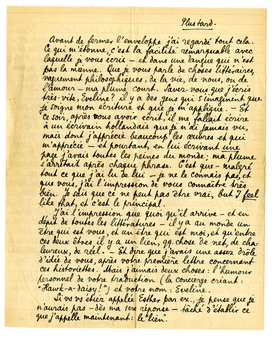 Plustard.
Avant de fermer l'enveloppe j'ai regardé tout cela.
Ce qui m'étonne, c'est la facilité remarquable avec
laquelle je vous écris – et dans une langue qui n'est
pas la mienne. Que je vous parle de choses littéraires,
vaguement philosophiques, de la vie, de vous, ou de
l'amour – ma plume court. Savez-vous que j'écris
très-vite, Eveline? il y a des gens qui s'imaginent que
je soigne mon écriture et que je m'applique. – Et
ce soir, après vous avoir écrit, il me fallait écrire
à un écrivain hollandais que je n'ai jamais vu,
mais dont j'apprécie beaucoup les œuvres et qui
m'apprécie – et pourtant, en lui écrivant une
page j'avais toutes les peines du monde; ma plume
s'arrêtait après chaque phrase. C'est que – malgré
tout ce que j'ai lu de lui – je ne le connais pas, et
que vous, j'ai l'impression de vous connaître très
bien. Je sais que ce ne peut pas être vrai, but I feel
like that, et c'est le principal.
J'ai l'impression que quoi qu'il arrive – et en
dépit de toutes les littératures – il y a au monde un
être qui est vous, et un être qui est moi, et qu'entre
ces deux êtres il y a un lien, qq. chose de net, de cha-
leureux, de réel. – Et dire que j'avais une assez drôle
d'idée de vous, après votre première lettre concernant
ces historiettes. Mais j'aimais deux choses: l'humour
personnel de votre traduction (la concierge criant:
"Hawk-a-daisy!") et votre nom: Eveline.
Si vous étiez appelée Esther par ex., je pense que je
n'aurais pas – dès ma 1ère réponse – tâché d'établir ce
que j'appelle maintenant: le lien.